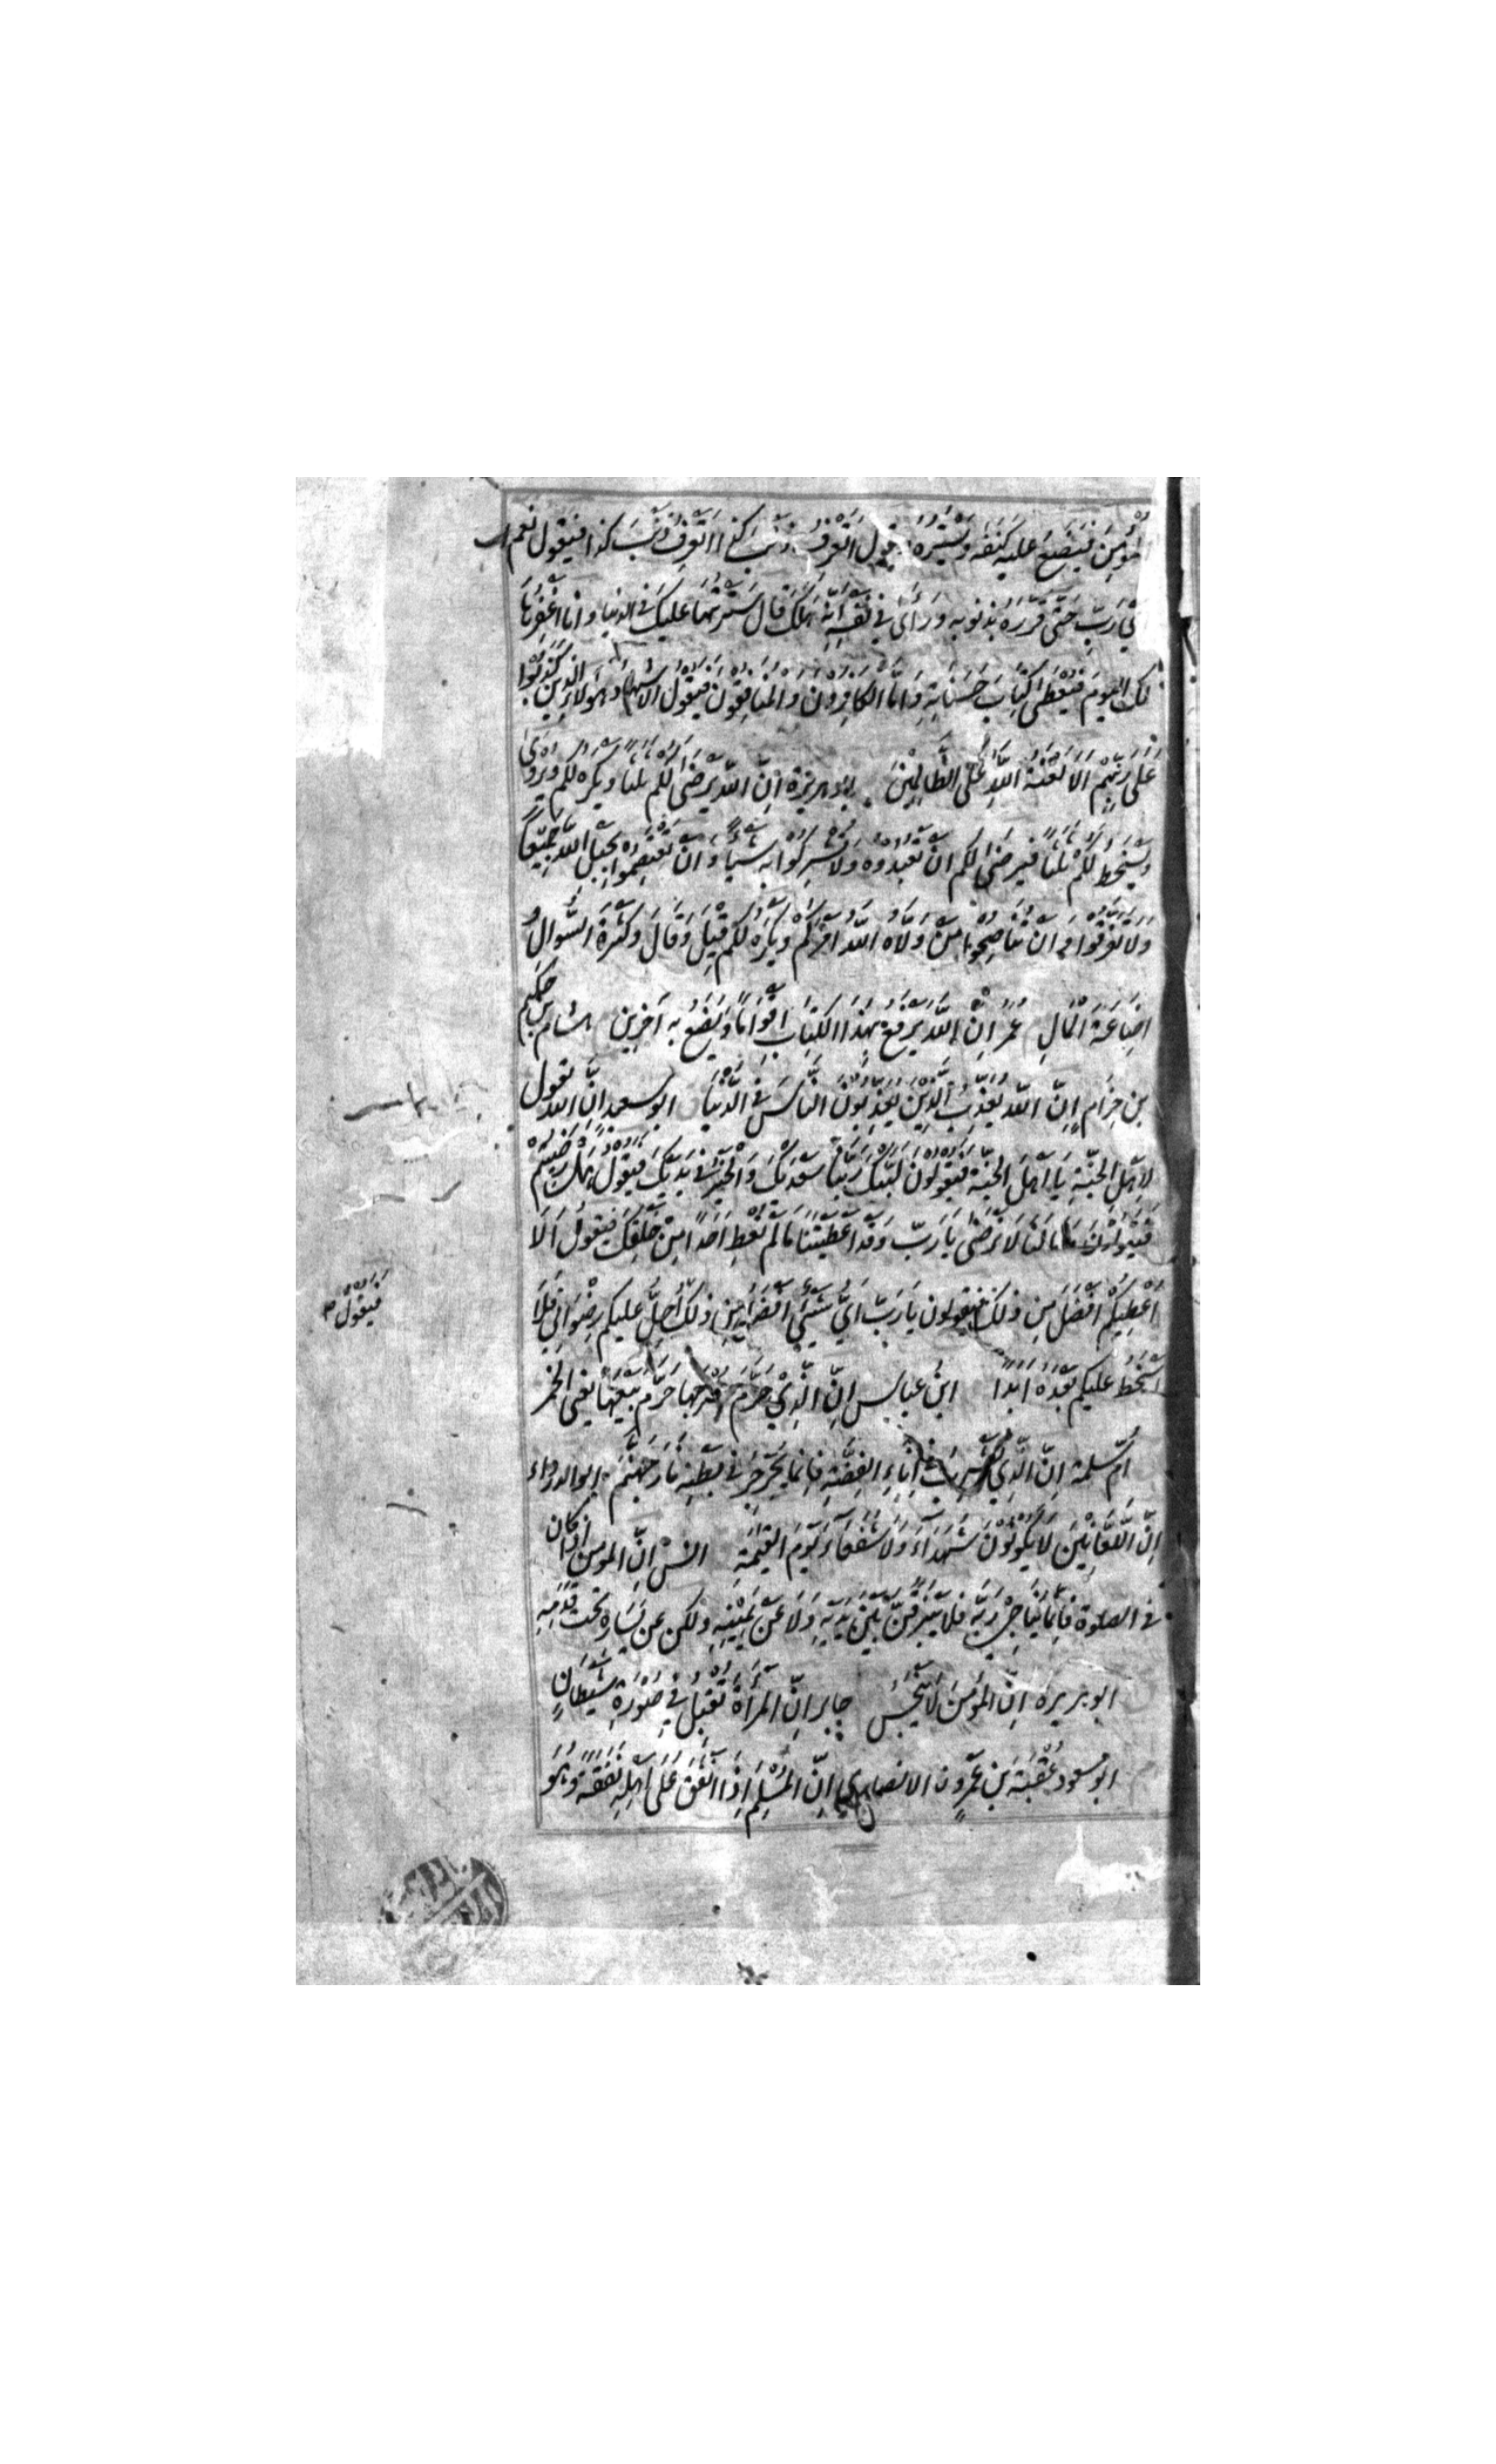 المؤمن فيضع عليه كنفه ويستره فيقول اتعرف ذنب كذا اتعرف ذنب كذا فيقول نعم
اي رب حتى قرره بذنوبه ورأى في نفسه انه هلك قال سترتها عليك في الدنيا وانا اغفرها
لك اليوم فيعطى كتاب حسناته واما الكافرون والمنافقون فيقول الاشهاد هؤلاء الذين كذبوا
على ربهم الا لعنة الله على الظالمين ابو هريرة ان الله يرضى لكم ثلثا ويكره لكم ويروى
ويسخط لكم ثلثا فيرضى لكم ان تعبدوه ولا تشركوا به شيئا وان تعتصموا بحبل الله جميعا
ولا تفرقوا وان تناصحوا من ولاه الله امركم ويكره لكم قيل وقال وكثرة السؤال و
اضاعة المال عمر ان الله يرفع بهذا الكتاب اقواما ويضع به آخرين هشام بن حكيم
بن حزام ان الله يعذب الذين يعذبون الناس في الدنيا ابو سعيد ان الله يقول
لاهل الجنة يا اهل الجنة فيقولون لبيك ربنا وسعديك والخير في يديك فيقول هل رضيتم
فيقولون مالنا لا نرضى يا رب وقد اعطيتنا ما لم تعط احدا من خلقك فيقول الا
اعطيكم افضل من ذلك فيقولون يا رب اي شيء افضل من ذلك احل عليكم رضواني فلا
فيقول
اسخط عليكم بعده ابدا ابن عباس ان الذي حرم شربها حرم بيعها يعني الخمر
ام سلمة ان الذي يشرب في اناء الفضة فانما يجرجر في بطنه نار جهنم ابو الدرداء
ان اللعانين لا يكونون شهداء ولا شفعاء يوم القيمة انس ان المومن اذا كان
في الصلوة فانما يناجي ربه فلا يبزقن بين يديه ولا عن يمينه ولكن عن يساره تحت قدمه
ابو هريرة ان المؤمن لا ينجس جابر ان المرأة تقبل في صورة شيطان
ابو مسعود عقبة بن عمرو الانصاري ان المسلم اذا انفق على اهله نفقة وهو